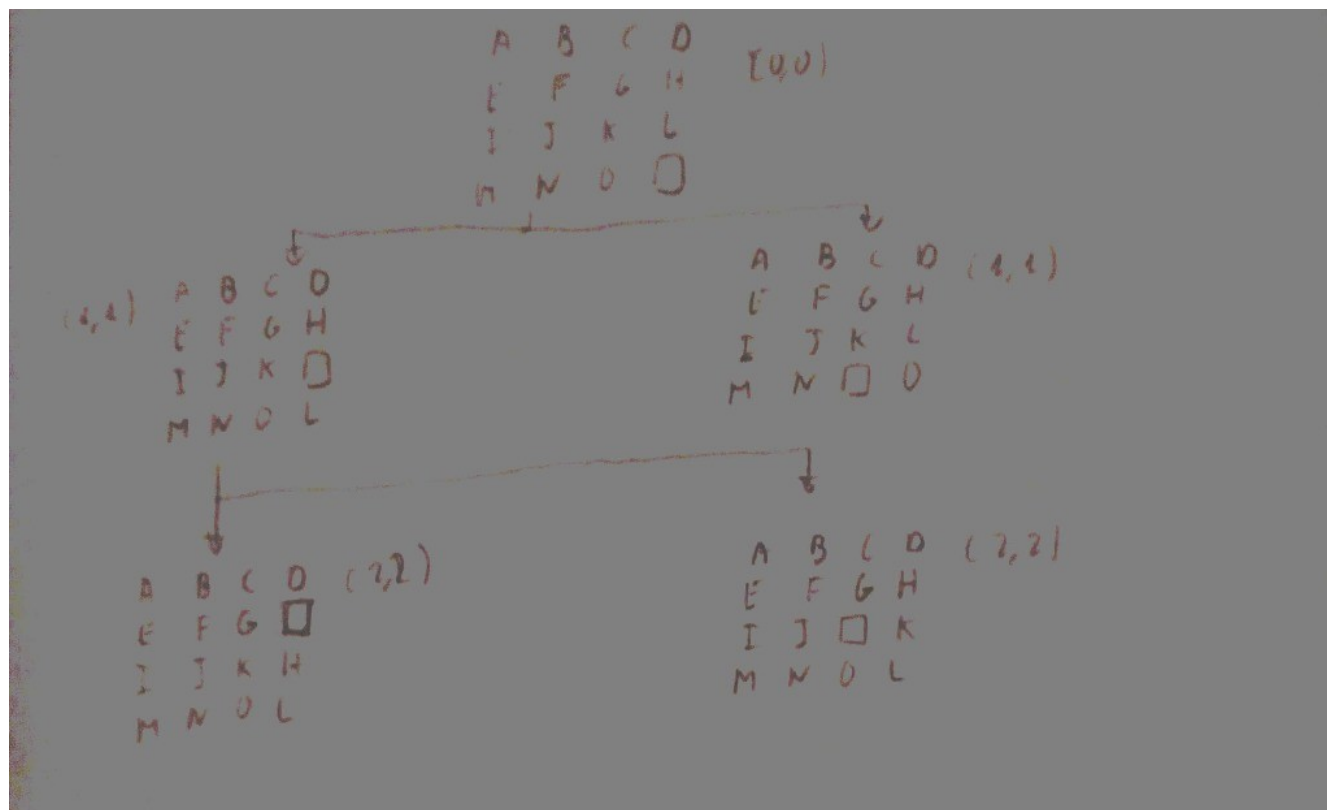 A B C D [0,0)
E F G H
I J K L
M N O
A B C D
(1,1) E F G H
I J K
M N O L
A B C D (1,1)
E F G H
I J K L
M N O
A B C D (2,2)
E F G
I J K H
M N O L
A B C D (2,2)
E F G H
I J K
M N O L